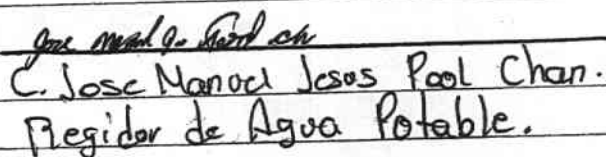 C. Jose Manoel Jesos Pool Chan.
Regidor de Agua Potable.